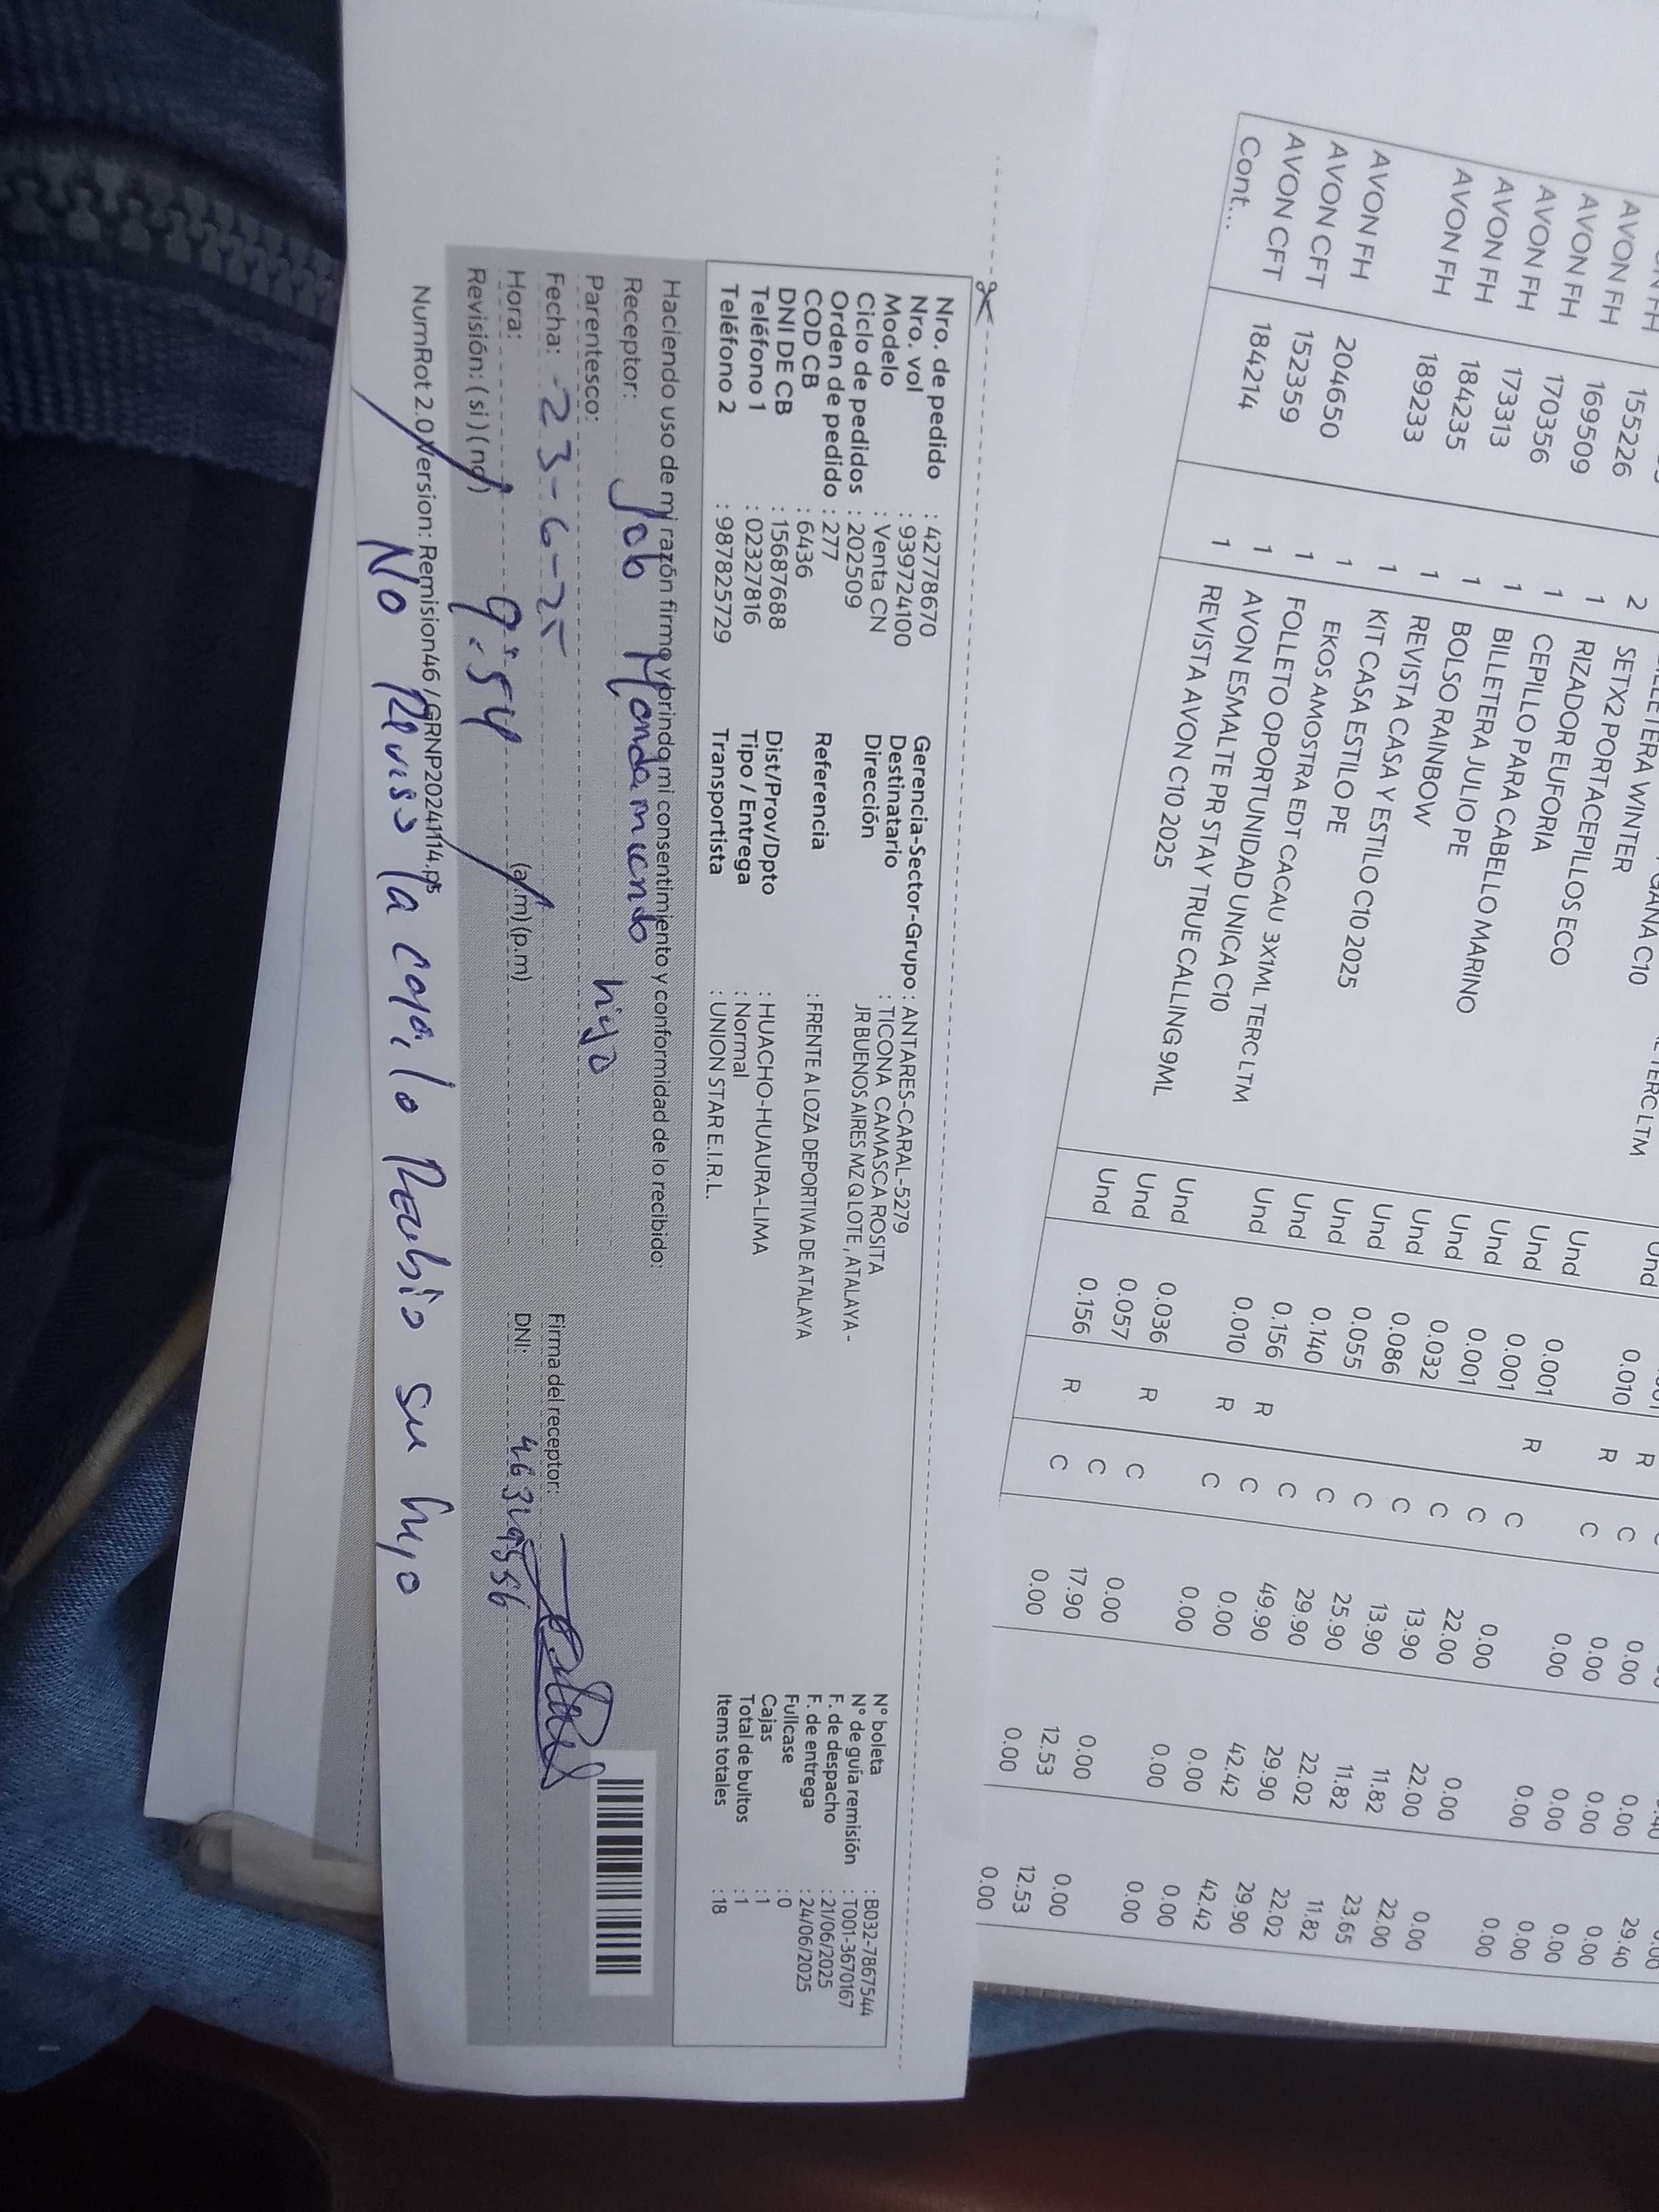 AVON FH 155226 2 SETX2 PORTACEPILLOS ECO
AVON FH 169509 1 RIZADOR EUFORIA
AVON FH 170356 1 CEPILLO PARA CABELLO MARINO
AVON FH 173313 1 BILLETERA JULIO PE
AVON FH 184235 1 BOLSO RAINBOW
AVON FH 189233 1 REVISTA CASA Y ESTILO C10 2025
1 KIT CASA ESTILO PE
AVON FH 204650 1 EKOS AMOSTRA EDT CACAU 3X1ML TERC LTM
AVON CFT 152359 1 FOLLETO OPORTUNIDAD UNICA C10
AVON CFT 184214 1 AVON ESMALTE PR STAY TRUE CALLING 9ML
Cont... 1 REVISTA AVON C10 2025
Und 0.010 R C 0.00 0.00 29.40
Und 0.001 R C 0.00 0.00 0.00
Und 0.001 C 0.00 0.00 0.00
Und 0.001 C 22.00 22.00 0.00
Und 0.032 C 13.90 11.82 22.00
Und 0.086 C 13.90 11.82 23.65
Und 0.055 C 25.90 22.02 11.82
Und 0.140 C 29.90 29.90 22.02
Und 0.156 R C 49.90 42.42 29.90
Und 0.010 R C 0.00 0.00 42.42
Und 0.036 R C 0.00 0.00 0.00
Und 0.057 C 17.90 12.53 12.53
Und 0.156 R C 0.00 0.00 0.00
Nro. de pedido : 42778670
Nro. vol : 939724100
Modelo : Venta CN
Ciclo de pedidos : 202509
Orden de pedido : 277
COD CB : 6436
DNI DE CB : 15687688
Teléfono 1 : 02327816
Teléfono 2 : 987825729
Gerencia-Sector-Grupo : ANTARES-CARAL-5279
Destinatario : TICONA CAMASCA ROSITA
Dirección JR BUENOS AIRES MZ Q LOTE , ATALAYA -
Referencia : FRENTE A LOZA DEPORTIVA DE ATALAYA
Dist/Prov/Dpto : HUACHO-HUAURA-LIMA
Tipo / Entrega : Normal
Transportista : UNION STAR E.I.R.L.
N° boleta : B032-7867544
N° de guia remisión : T001-3670167
F. de despacho : 21/06/2025
F. de entrega : 24/06/2025
Fullcase : 0
Cajas : 1
Total de bultos : 1
Items totales : 18
Haciendo uso de mi razón firmo y brindo mi consentimiento y conformidad de lo recibido:
Receptor: Job
Parentesco: hijo
Fecha: 23-6-25
Firma del receptor:
Hora: 9:54 (a.m) (p.m)
DNI:
Revisión: ( si ) ( no )
NumRot 2.0 Version: Remision46 / GRNP20241114.p5
No Reviso la caja, lo Recibio su hijo